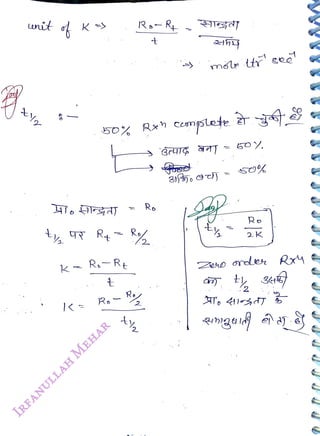 unit of K ⇒ R₀-Rₜ / t = सान्द्रता / समय
⇒ mole ltr⁻¹ sec⁻¹
t½ :-
50% Rxⁿ complete हो चुकी हो
→ उत्पाद बना = 50%
→ अभि० बचा = 50%
प्रा० सान्द्रता = R₀
t½ पर Rₜ = R₀/2
K = R₀-Rₜ / t
K = R₀ - R₀/2 / t½
t½ = R₀ / 2.K
Zero order Rxⁿ
का t½ उसकी
प्रा० सान्द्रता के
समानुपाती होता है।
IRFANULLAH MEHAR